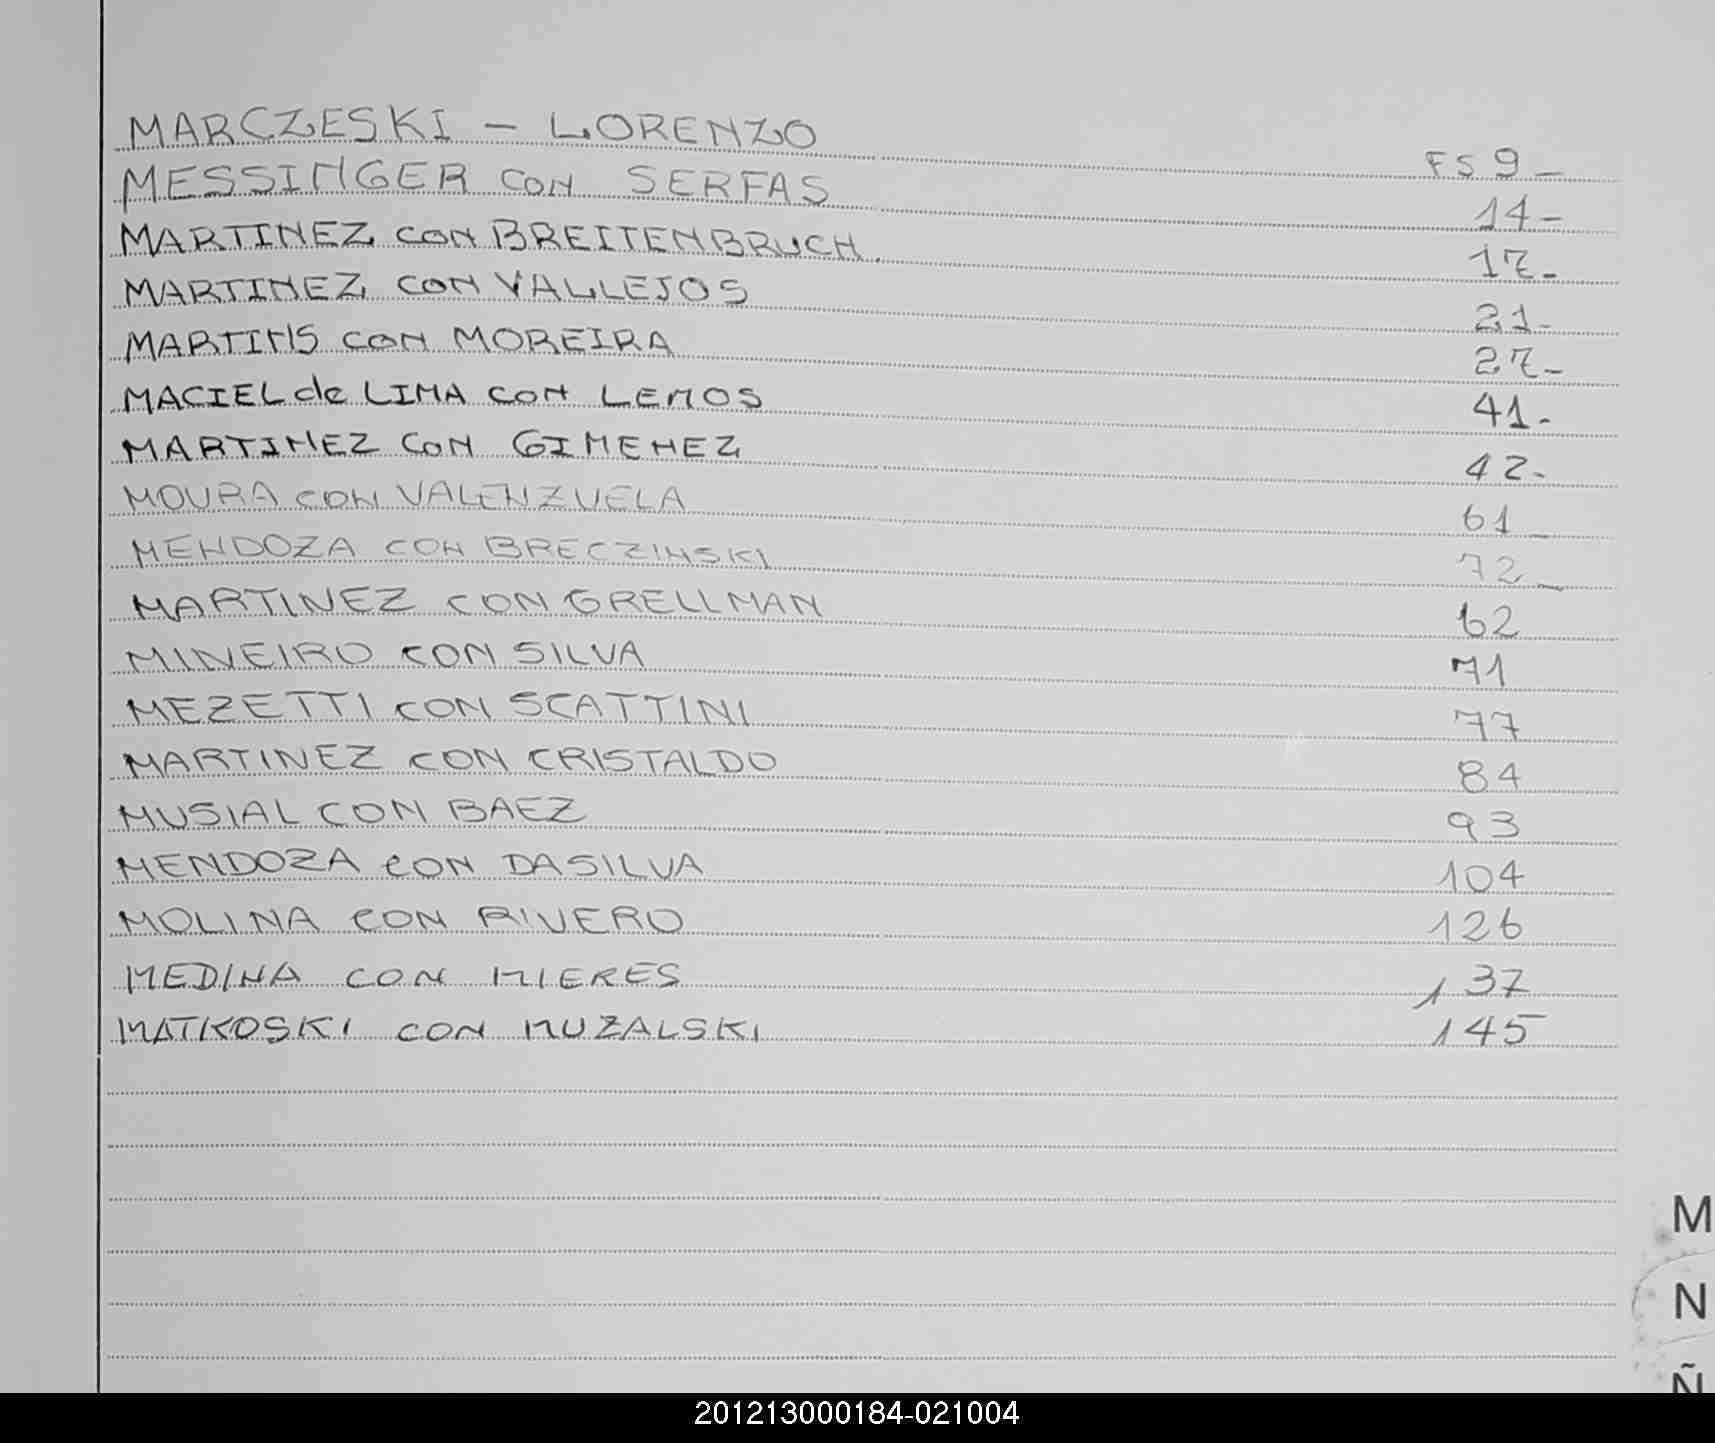 MARCZESKI - LORENZO FS 9-
MESSINGER CON SERFAS 14-
MARTINEZ CON BREITENBRUCH. 17-
MARTINEZ CON VALLEJOS 21-
MARTINS CON MOREIRA 27-
MACIEL de LIMA CON LEMOS 41-
MARTINEZ CON GIMENEZ 42-
MOURA CON VALENZUELA 61-
MENDOZA CON BRECZINSKI 72-
MARTINEZ CON GRELLMAN 62
MINEIRO CON SILVA 71
MEZETTI CON SCATTINI 77
MARTINEZ CON CRISTALDO 84
MUSIAL CON BAEZ 93
MENDOZA CON DASILVA 104
MOLINA CON RIVERO 126
MEDINA CON MIERES 137
MATKOSKI CON MUZALSKI 145
M
N
Ñ
201213000184-021004